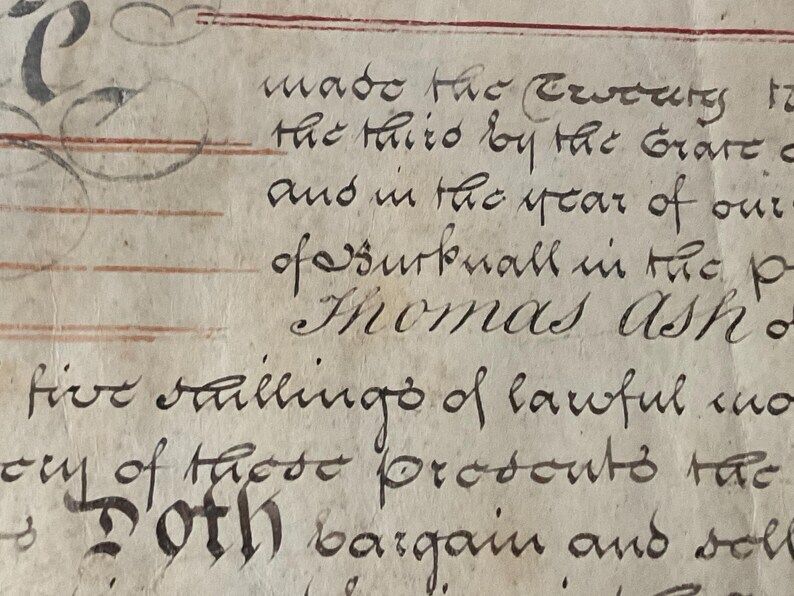 made the Twenty
the third by the Grace
and in the year of our
of Bucknall in the p
Thomas Ash of
five shillings of lawful mo
ery of these presents the
Doth bargain and sell